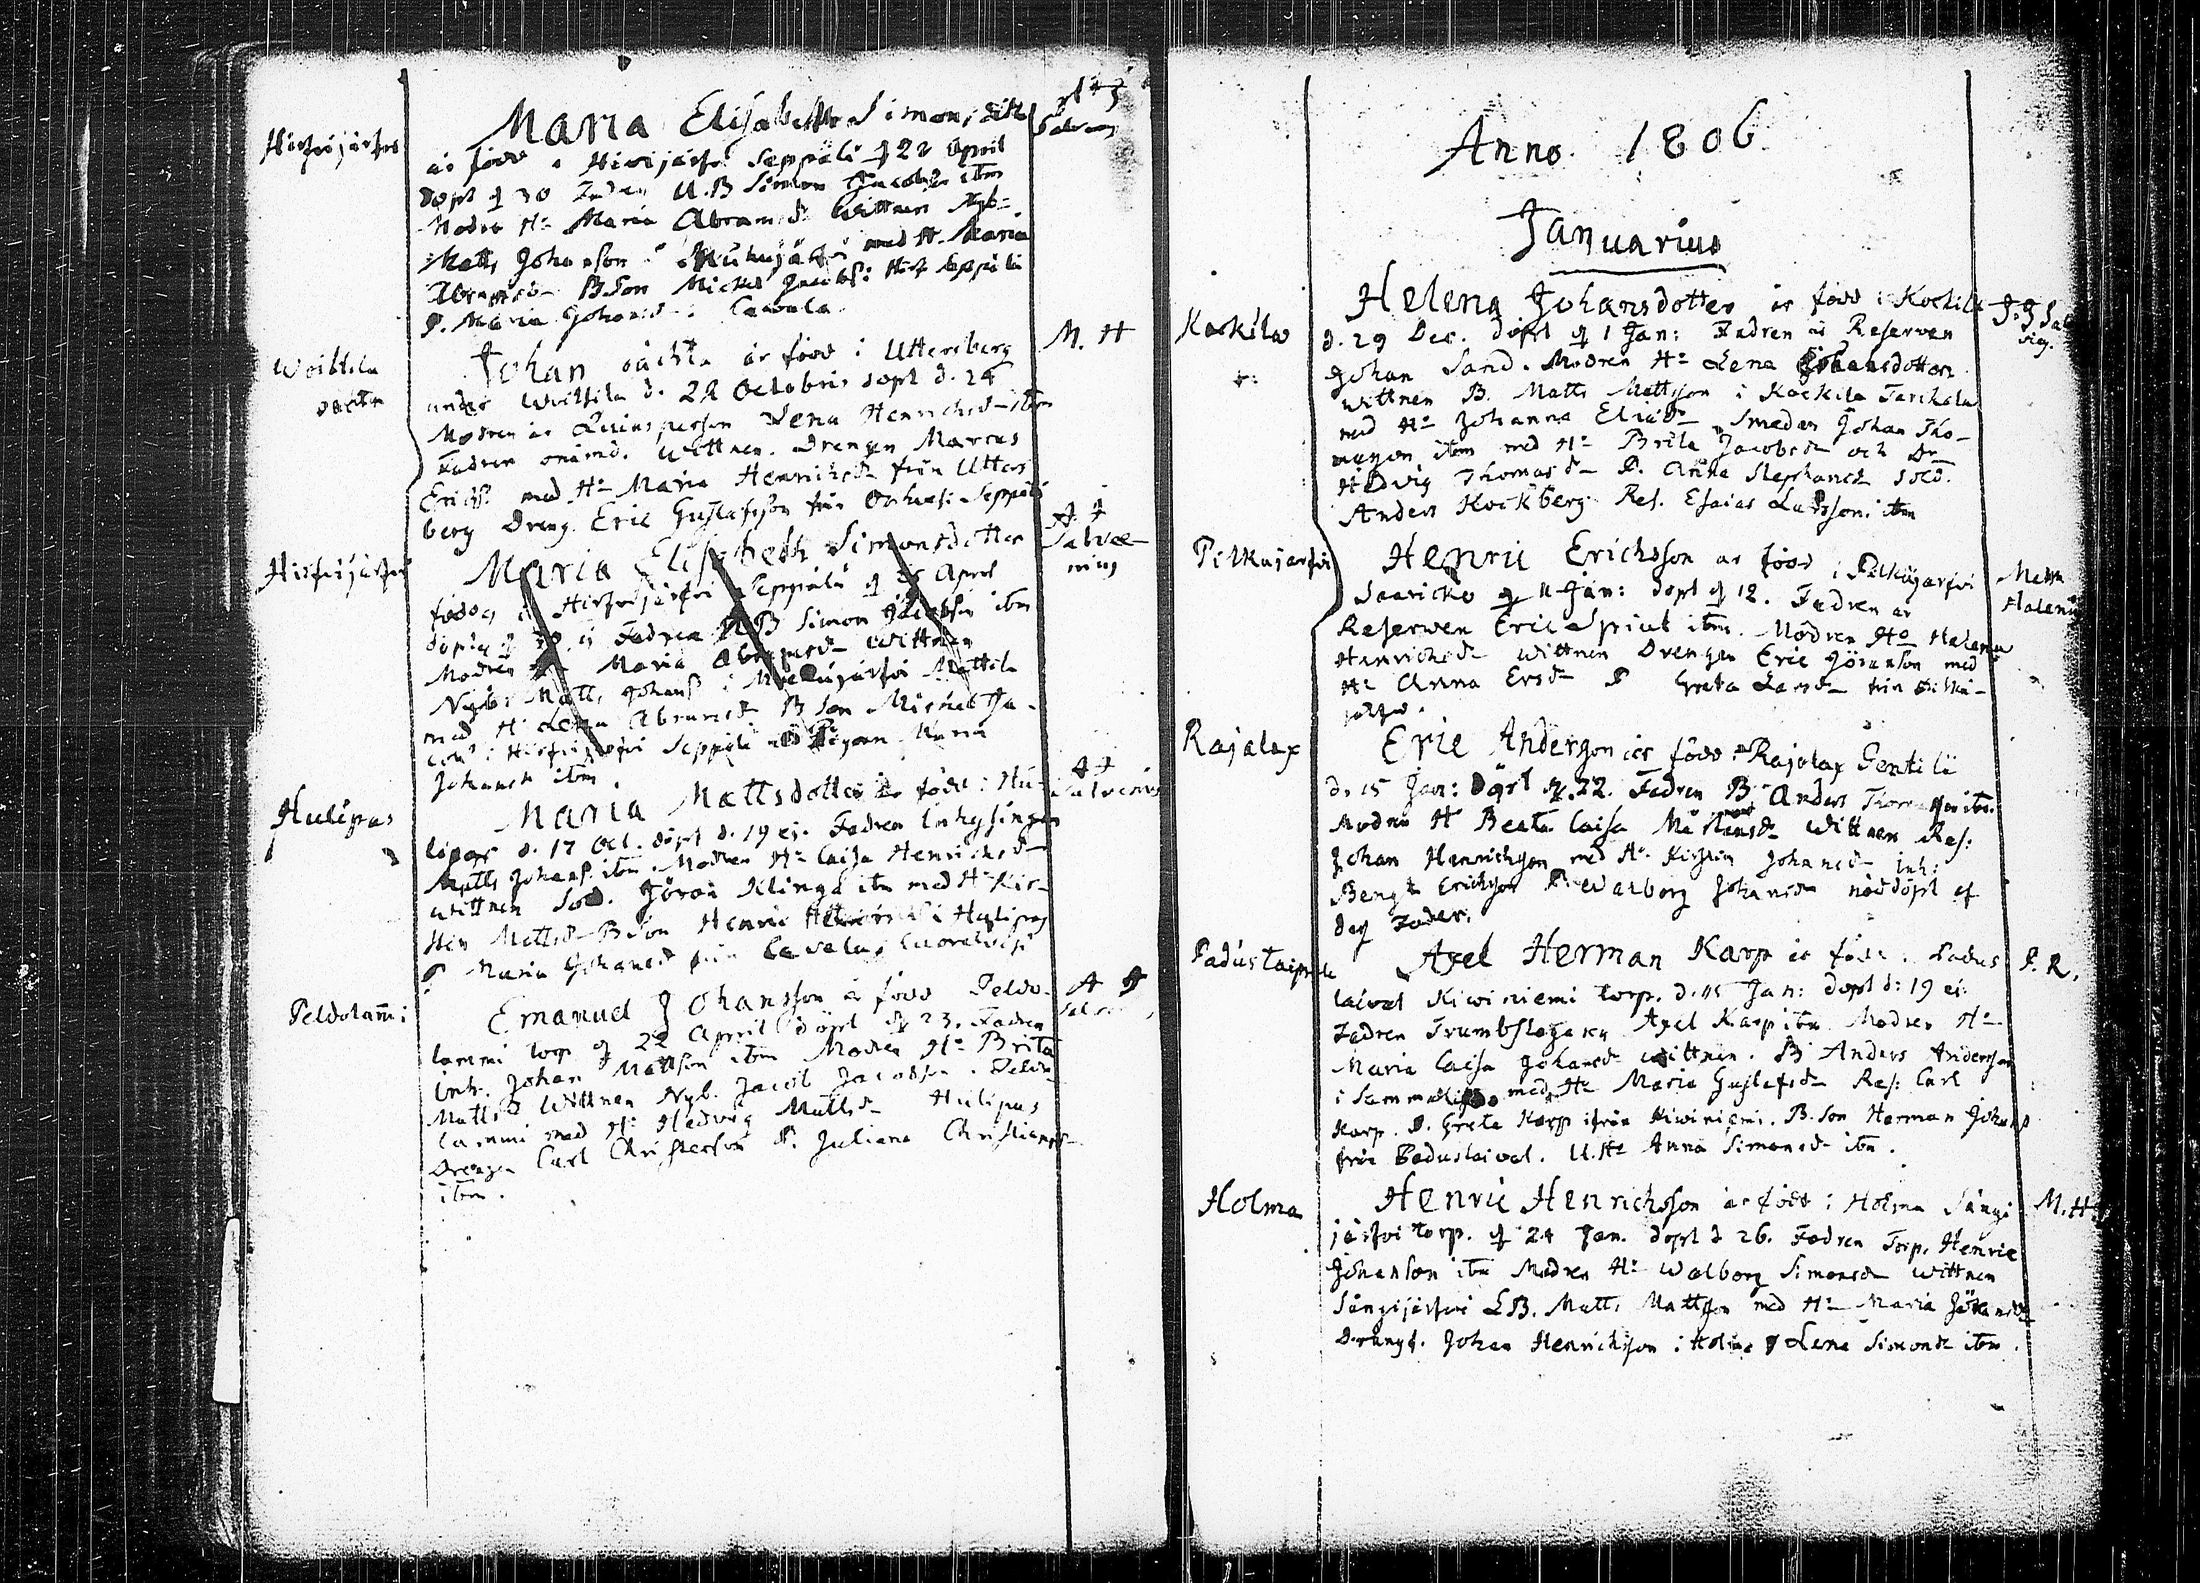 Maria Elisabeth Simonsdotter
är född i Hirvijärfvi Seppälä d 28 April
döpt d 30 Fadren U.B Simon Jacobs. itm
Modren Hu Maria Abramsd. Wittnen Nyb.
Matts Johanson i med H. Maria
Abramsd. B.Son Mickel Jacobs: Hirf Seppälä
P. Maria Johansd. i Cawala
Hirfvijärfvi
M. H
Johan oächta är född i Uttersberg
under Woittila d. 22 Octobris döpt d. 24
Modren är Quinsperson Lena Henrichsd. itm
Fadren onämd. Wittnen. Drengen Marcus
Erichs. med Hu Maria Henrichsd. från Utters
berg Dreng. Eric Gustafsson från Seppälä
Woittila
oächta
Maria Elisabeth Simonsdotter
född i Hirfvijärfvi Seppälä d 28 April
döpt d 30 Fadren B Simon Jacobson itm
Modren Maria Abramsd. Wittnen
Nyb. Matts Johans. i Mattila
med H Lena Abramsd. B Son Mickel Ja-
cobs i Hirfvijärfvi Seppälä Pigan Maria
Johansd. itm.
Hirfvijärfvi
A. J
Salve-
nius
Maria Mattsdotter är född i Hu-
lipas d. 17 Oct. döpt d. 19 ej. Fadren Inhysingen
Matts Johans. itm. Modren Hu Caisa Henrichsd.
Wittnen Sold. Göran Klinga itm med H Kir-
stin Mattsd. B Son Henric i Hulipas
P Maria Johansd från
Hulipas
A J
Salvenius
Emanuel Johansson är född Peldo-
lammi torp d 22 April döpt d 23. Fadren
Inh. Johan Mattson itm Modren Hu Brita
Mattsd Wittnen Nyb. Jacob Jacobson. Peldo
lammi med H: Hedvig Mattsd. Hulipas
Drengen Carl Christerson P. Juliana Christiansd.
itm.
Peldolam̄i
A J
Anno 1806
Januarius
Helena Johansdotter är född i Kockila
d. 29 Dec. döpt d 1 Jan: Fadren är Reserven
Johan Sand. Modren Hu Lena Johansdotter.
Wittnen B. Matts Mattsson i Kockila
med Hu Johanna Eliæd. Smeden Johan Tho-
masson itm med Hu Brita Jacobsd. och Dr
Hedvig Thomasd. P. Anna Stephansd. Sold.
Anders Kockberg. Res. Esaias Larsson. itm
Kockila
J. J Sal
Henric Erichsson är född i Pitkäjärfvi
Saaricko d 11 Jan: döpt d 12. Fadren är
Reserven Eric Sprint itm. Modren Hu Helena
Henrichsd. Wittnen Drengen Eric Göranson med
Hu Anna Ersd. P Greta Larsd. från Pitkä-
järfvi.
Pitkajarfvi
Eric Anderson är född i Rajalax Gentilä
d. 15 Jan: döpt d. 22. Fadren B Anders Thomasson itm.
Modren H Beata Caisa Mårtensd. Wittnen Res:
Johan Henrichson med Hu Kirstin Johansd. Inh:
Bengt Erichson P. Walborg Johansd. nöddöpt af
Fadren.
Rajalax
Axel Herman Karp är född i Padus
taival Kiwiniemi torp. d. 15 Jan: döpt d: 19 ej.
Fadren Trumbslagaren Axel Karp itm Modren Hu
Maria Caisa Johansd Wittnen. B Anders Anderson
i med Hu Maria Gustafsd. Res: Carl
Karp. P. Greta Karp ifrån Kiwiniemi. B. Son Herman Johans
från Padustaival. U.Hu Anna Simonsd. itm.
P. R.
Henric Henrichsson är född i Holma Sängi
järfvi torp. d 24 Jan. döpt d 26. Fadren Torp. Henric
Johanson itm Modren Hu Walborg Simonsd. Wittnen
Sängijärfvi LB. Matts Mattson med Hu Maria Johansd
Drengf. Johan Henrichson i Holma P Lena Simonsd. itm.
Holma
M. H